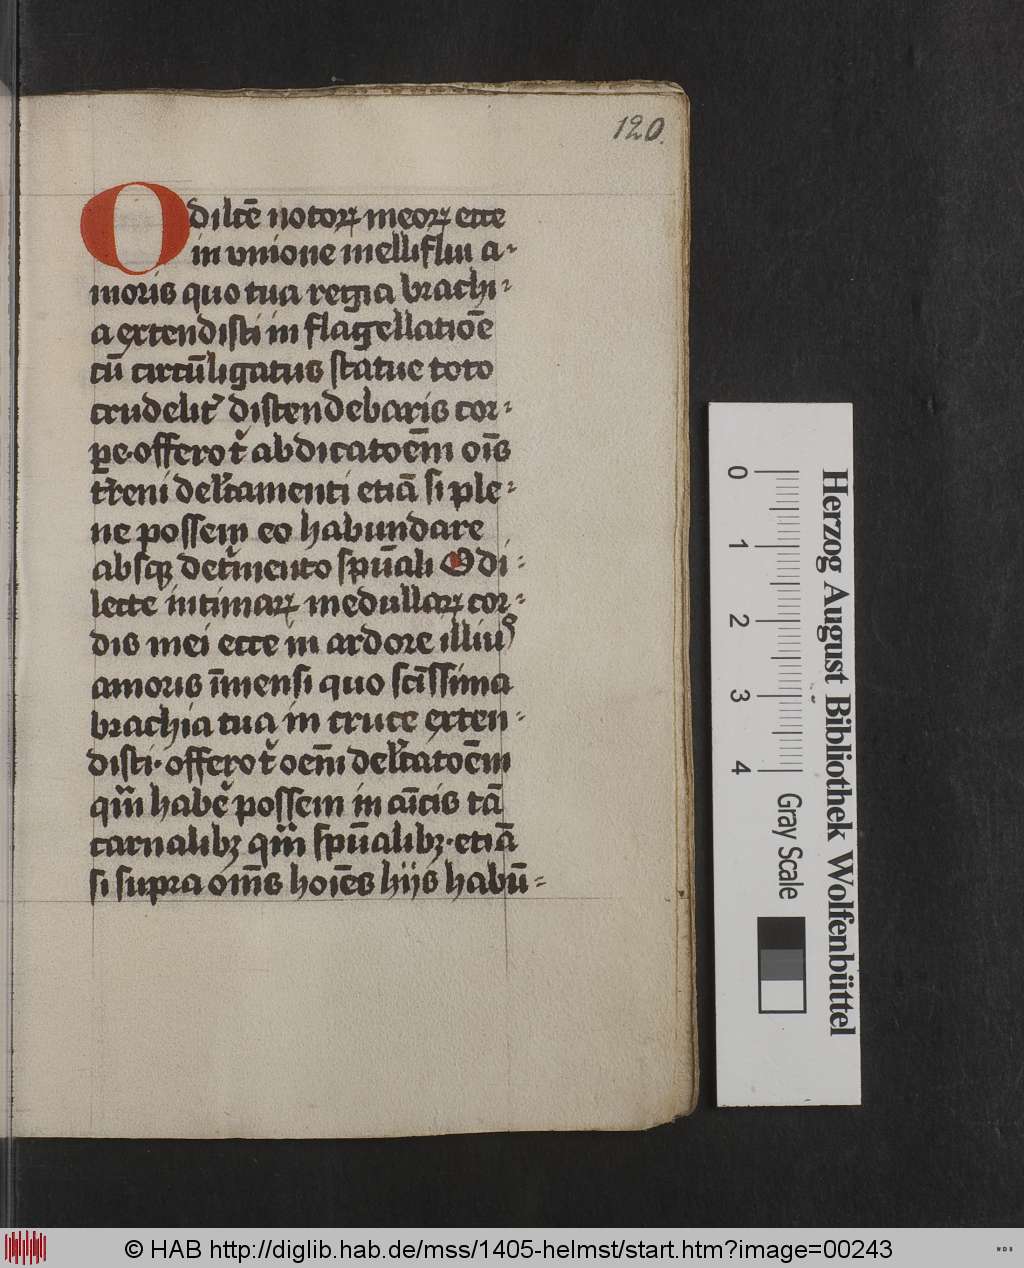 120.
O dilcē votoꝝ meoꝝ ecce
in vnione melliflui a-
moris quo tua regia brachi-
a extendisti in flagellatiōe
cū circūligatus statue toto
crudelit᷑ distendebaris cor-
ꝑe·offero t᷑ abdicatoēm oīs
t᷑reni delc̄tamenti etiā si ple-
ne possem eo habundare
absqꝫ det᷑mento spūali O di-
lecte intimaꝝ medullaꝝ cor-
dis mei ecce in ardore illiuꝰ
amoris īmensi quo scīssima
brachia tua in cruce exten-
disti·offero t᷑ oēm delc̄tatoēm
qm̄ habe᷑ possem in cūctis tā
carnalibꝫ qm̄ spūalibꝫ·etiā
si supra om̄s hoīes hijs habū-
0
1
2
3
4
Gray Scale
Herzog August Bibliothek Wolfenbüttel
© HAB http://diglib.hab.de/mss/1405-helmst/start.htm?image=00243